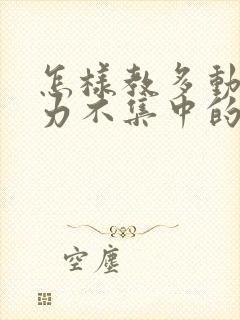 怎樣教多動
力不集中的
空塵